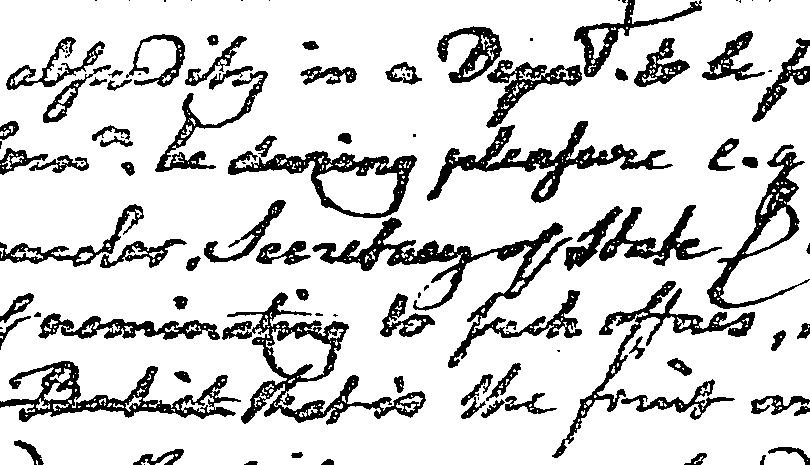 absurdity in a Deput. to be fo
Com.n. be during pleasure e.g
ancelor, Secretary of State
nominating to such offices,
Batist that is the fruit an